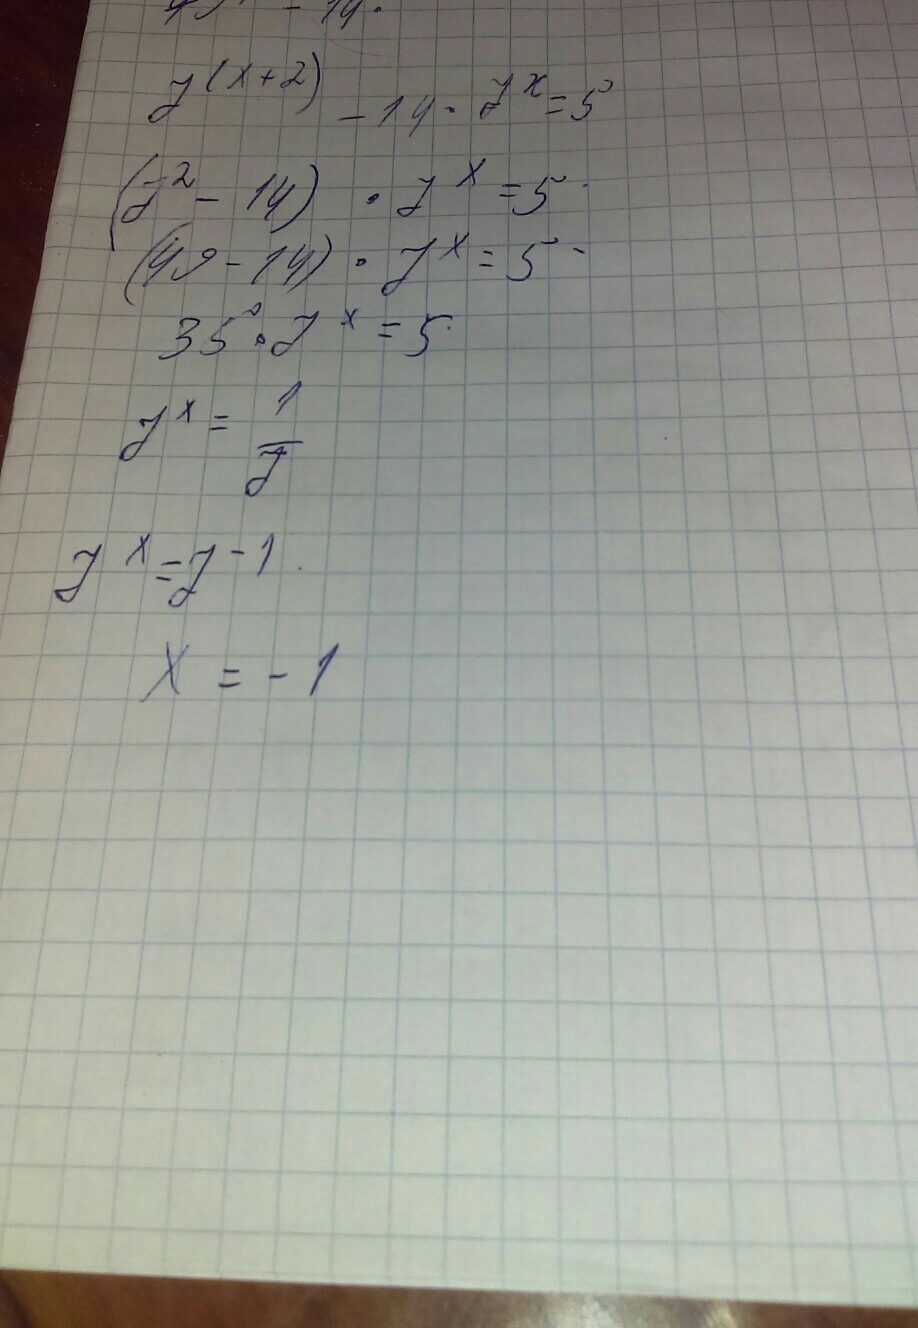 49 - 14.
7^(x+2) - 14 · 7^x = 5
(7² - 14) · 7^x = 5
(49 - 14) · 7^x = 5
35 · 7^x = 5
7^x = 1/7
7^x = 7^-1
x = -1